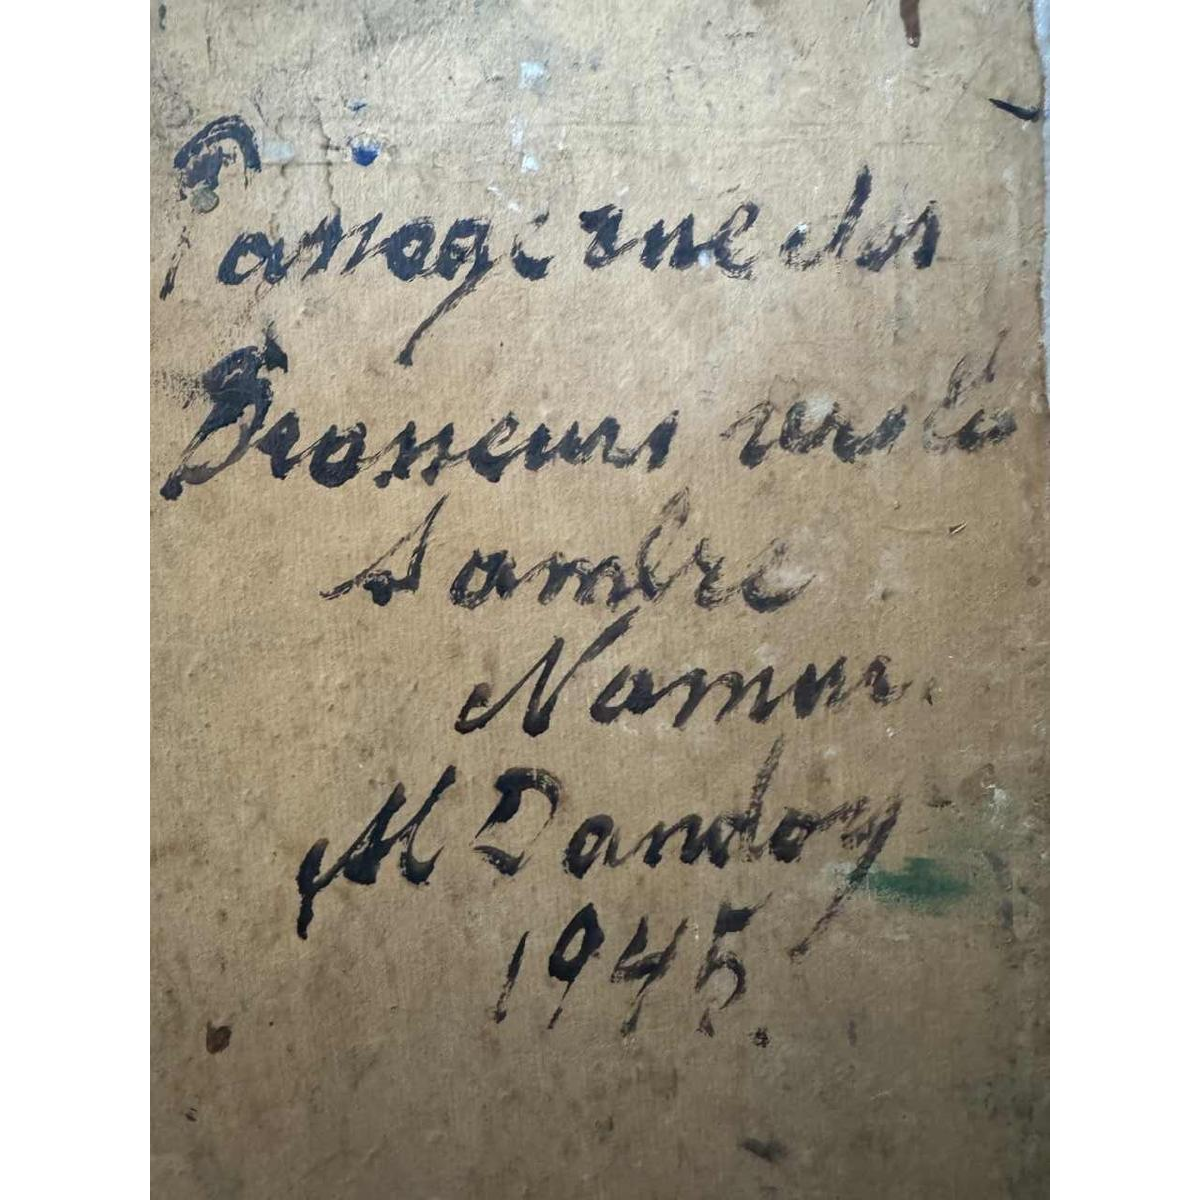 Passage rue des
Brasseurs vers la
Sambre
Namur.
M Dandoy
1945.